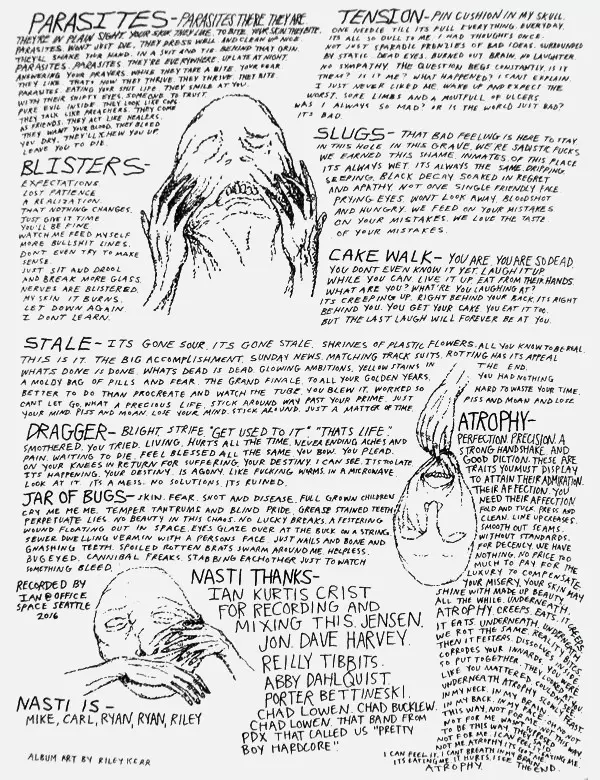 PARASITES- PARASITES THERE THEY ARE
THEY'RE IN PLAIN SIGHT. YOUR SKIN THEY LIKE TO BITE. YOUR SKIN THEY BITE.
PARASITES. WONT JUST DIE. THEY DRESS WELL AND CLEAN UP NICE.
THEY SHAKE YOUR HAND. IN A SUIT AND TIE. BEHIND THAT GRIN.
PARASITES. PARASITES THEY'RE EVERYWHERE. UP LATE AT NIGHT.
ANSWERING YOUR PRAYERS. WHILE THEY TAKE A BITE. YOUR FEAR
THEY LIKE. THAT'S HOW THEY THRIVE. THEY THRIVE. THEY BITE
PARASITES EATING YOUR SHIT LIFE THEY SMILE AT YOU.
WITH THEIR EMPTY EYES. SOMEONE TO TRUST.
PURE EVIL INSIDE THEY LOOK LIKE COPS
THEY TALK LIKE PREACHERS. THEY COME
AS FRIENDS. THEY ACT LIKE HEALERS.
THEY WANT YOUR BLOOD. THEY BLEED
YOU DRY. THEY'LL CHEW YOU UP.
LEAVE YOU TO DIE.
BLISTERS-
EXPECTATIONS
LOST PATIENCE
A REALIZATION.
THAT NOTHING CHANGES.
JUST GIVE IT TIME
YOU'LL BE FINE
WATCH ME FEED MYSELF
MORE BULLSHIT LINES.
DONT EVEN TRY TO MAKE
SENSE.
JUST SIT AND DROOL
AND BREAK MORE GLASS.
NERVES ARE BLISTERED.
MY SKIN IT BURNS.
LET DOWN AGAIN
I DONT LEARN.
TENSION- PIN CUSHION IN MY SKULL.
ONE NEEDLE TILL ITS FULL. EVERYTHING. EVERYDAY.
ITS ALL SO DULL TO ME. I HAD THOUGHTS ONCE.
NOT JUST SPARADIC FRENZIES OF BAD IDEAS. SURROUNDED
BY STATIC. DEAD EYES. BURNED OUT BRAIN. NO LAUGHTER.
NO SYMPATHY. THE QUESTION BEGS CONSTANTLY. IS IT
THEM? IS IT ME? WHAT HAPPENED? I CANT EXPLAIN.
I JUST NEVER LIKED ME. WAKE UP AND EXPECT THE
WORST. SORE LIMBS AND A MOUTFULL OF ULCERS.
WAS I ALWAYS SO MAD? OR IS THE WORLD JUST BAD?
ITS BAD.
SLUGS- THAT BAD FEELING IS HERE TO STAY
IN THIS HOLE IN THIS GRAVE. WE'RE SADISTIC FUCKS.
WE EARNED THIS SHAME. INMATES OF THIS PLACE
ITS ALWAYS WET ITS ALWAYS THE SAME. DRIPPING
SEEPING. BLACK DECAY SOAKED IN REGRET
AND APATHY. NOT ONE SINGLE FRIENDLY FACE
PRYING EYES. WONT LOOK AWAY. BLOODSHOT
AND HUNGRY. WE FEED ON YOUR MISTAKES
ON YOUR MISTAKES. WE LOVE THE TASTE.
OF YOUR MISTAKES.
CAKE WALK- YOU ARE. YOU ARE SO DEAD.
YOU DONT EVEN KNOW IT YET. LAUGH IT UP
WHILE YOU CAN. LIVE IT UP. EAT FROM THEIR HANDS
WHAT ARE YOU? WHAT'RE YOU LAUGHING AT?
IT'S CREEPING UP. RIGHT BEHIND YOUR BACK. ITS RIGHT
BEHIND YOU. YOU GET YOUR CAKE. YOU EAT IT TOO.
BUT THE LAST LAUGH WILL FOREVER BE AT YOU.
STALE- ITS GONE SOUR. IT'S GONE STALE. SHRINES OF PLASTIC FLOWERS. ALL YOU KNOW TO BE REAL.
THIS IS IT. THE BIG ACCOMPLISHMENT. SUNDAY NEWS. MATCHING TRACK SUITS. ROTTING HAS ITS APPEAL
WHATS DONE IS DONE. WHATS DEAD IS DEAD. GLOWING AMBITIONS. YELLOW STAINS IN
A MOLDY BAG OF PILLS AND FEAR. THE GRAND FINALE. TO ALL YOUR GOLDEN YEARS.
BETTER TO DO THAN PROCREATE AND WATCH THE TUBE. YOU BLEW IT. WORKED SO
CANT LET GO WHAT A PRECIOUS LIFE. STICK AROUND WAY PAST YOUR PRIME. JUST
YOUR MIND. PISS AND MOAN. LOSE YOUR MIND. STICK AROUND. JUST A MATTER OF TIME.
THE END.
YOU HAD NOTHING
HARD TO WASTE YOUR TIME.
PISS AND MOAN AND LOSE.
DRAGGER- BLIGHT. STRIFE. "GET USED TO IT." "THATS LIFE."
SMOTHERED. YOU TRIED. LIVING. HURTS ALL THE TIME. NEVER ENDING ACHES AND
PAIN. WAITING TO DIE. FEEL BLESSED ALL THE SAME YOU BOW. YOU PLEAD.
ON YOUR KNEES IN RETURN FOR SUFFERING. YOUR DESTINY I CAN SEE. IT'S TOO LATE
ITS HAPPENING. YOUR DESTINY. IS AGONY LIKE FUCKING WORMS. IN A MICROWAVE
LOOK AT IT. ITS A MESS. NO SOLUTIONS. ITS RUINED.
JAR OF BUGS- SKIN. FEAR. SNOT AND DISEASE. FULL GROWN CHILDREN
CRY ME ME ME. TEMPER TANTRUMS AND BLIND PRIDE. GREASE STAINED TEETH
PERPETUATE LIES. NO BEAUTY IN THIS CHAOS. NO LUCKY BREAKS. A FESTERING
WOUND FLOATING OUT IN SPACE. EYES GLAZE OVER AT THE BUCK ON A STRING.
SEWER DWELLING VERMIN WITH A PERSONS FACE. JUST NAILS AND BONE AND
GNASHING TEETH. SPOILED ROTTEN BRATS SWARM AROUND ME. HELPLESS.
BUG EYED. CANNIBAL FREAKS. STABBING EACHOTHER JUST TO WATCH
SOMETHING BLEED.
ATROPHY-
PERFECTION. PRECISION. A
STRONG HANDSHAKE. AND
GOOD DICTION. THESE ARE
TRAITS YOU MUST DISPLAY
TO ATTAIN THEIR ADMIRATION.
THEIR AFFECTION. YOU
NEED THEIR AFFECTION.
FOLD AND TUCK. PRESS AND
CLEAN. LINE UP CREASES.
SMOOTH OUT SEAMS.
WITHOUT STANDARDS.
FOR DECENCY. WE HAVE
NOTHING. NO PRICE TOO
MUCH TO PAY FOR THE
LUXURY TO COMPENSATE.
YOUR MISERY. YOUR SKIN MAY
SHINE WITH MADE UP BEAUTY
ALL THE WHILE. UNDERNEATH.
ATROPHY. CREEPS. EATS. IT CREEPS.
IT EATS. UNDERNEATH. UNDERNEATH
WE ROT THE SAME. REALITY BITES
THEN IT FESTERS. DISSOLVES.
CORRODES YOUR INWARDS. YOU WERE
SO PUT TOGETHER. THEY LOOKED AT YOU
LIKE YOU MATTERED COULD YOU SEE.
UNDERNEATH ATROPHY
IN MY NECK. IN MY BRAIN. ON MY FEET
IN MY BACK. IN MY FACE. OH DO NOT
THIS WAY. NOT FOR ME.
NOT FOR ME. I WANT
TO BE THIS WAY.
NOT FOR ME. I CAN FEEL
NOT ME ATROPHY ITS GOT
I CAN FEEL IT. I CANT BREATH IN MY BRAIN.
ITS EATING ME IT HURTS. I SEE THE END.
ATROPHY.
RECORDED BY
IAN @ OFFICE
SPACE SEATTLE
2016
NASTI THANKS-
IAN KURTIS CRIST
FOR RECORDING AND
MIXING THIS. JENSEN.
JON. DAVE HARVEY.
REILLY TIBBITS.
ABBY DAHLQUIST.
PORTER BETTINESKI.
CHAD LOWEN. CHAD BUCKLEW.
CHAD LOWEN. THAT BAND FROM
PDX THAT CALLED US "PRETTY
BOY HARDCORE".
NASTI IS-
MIKE, CARL, RYAN, RYAN, RILEY
ALBUM ART BY RILEY KERR